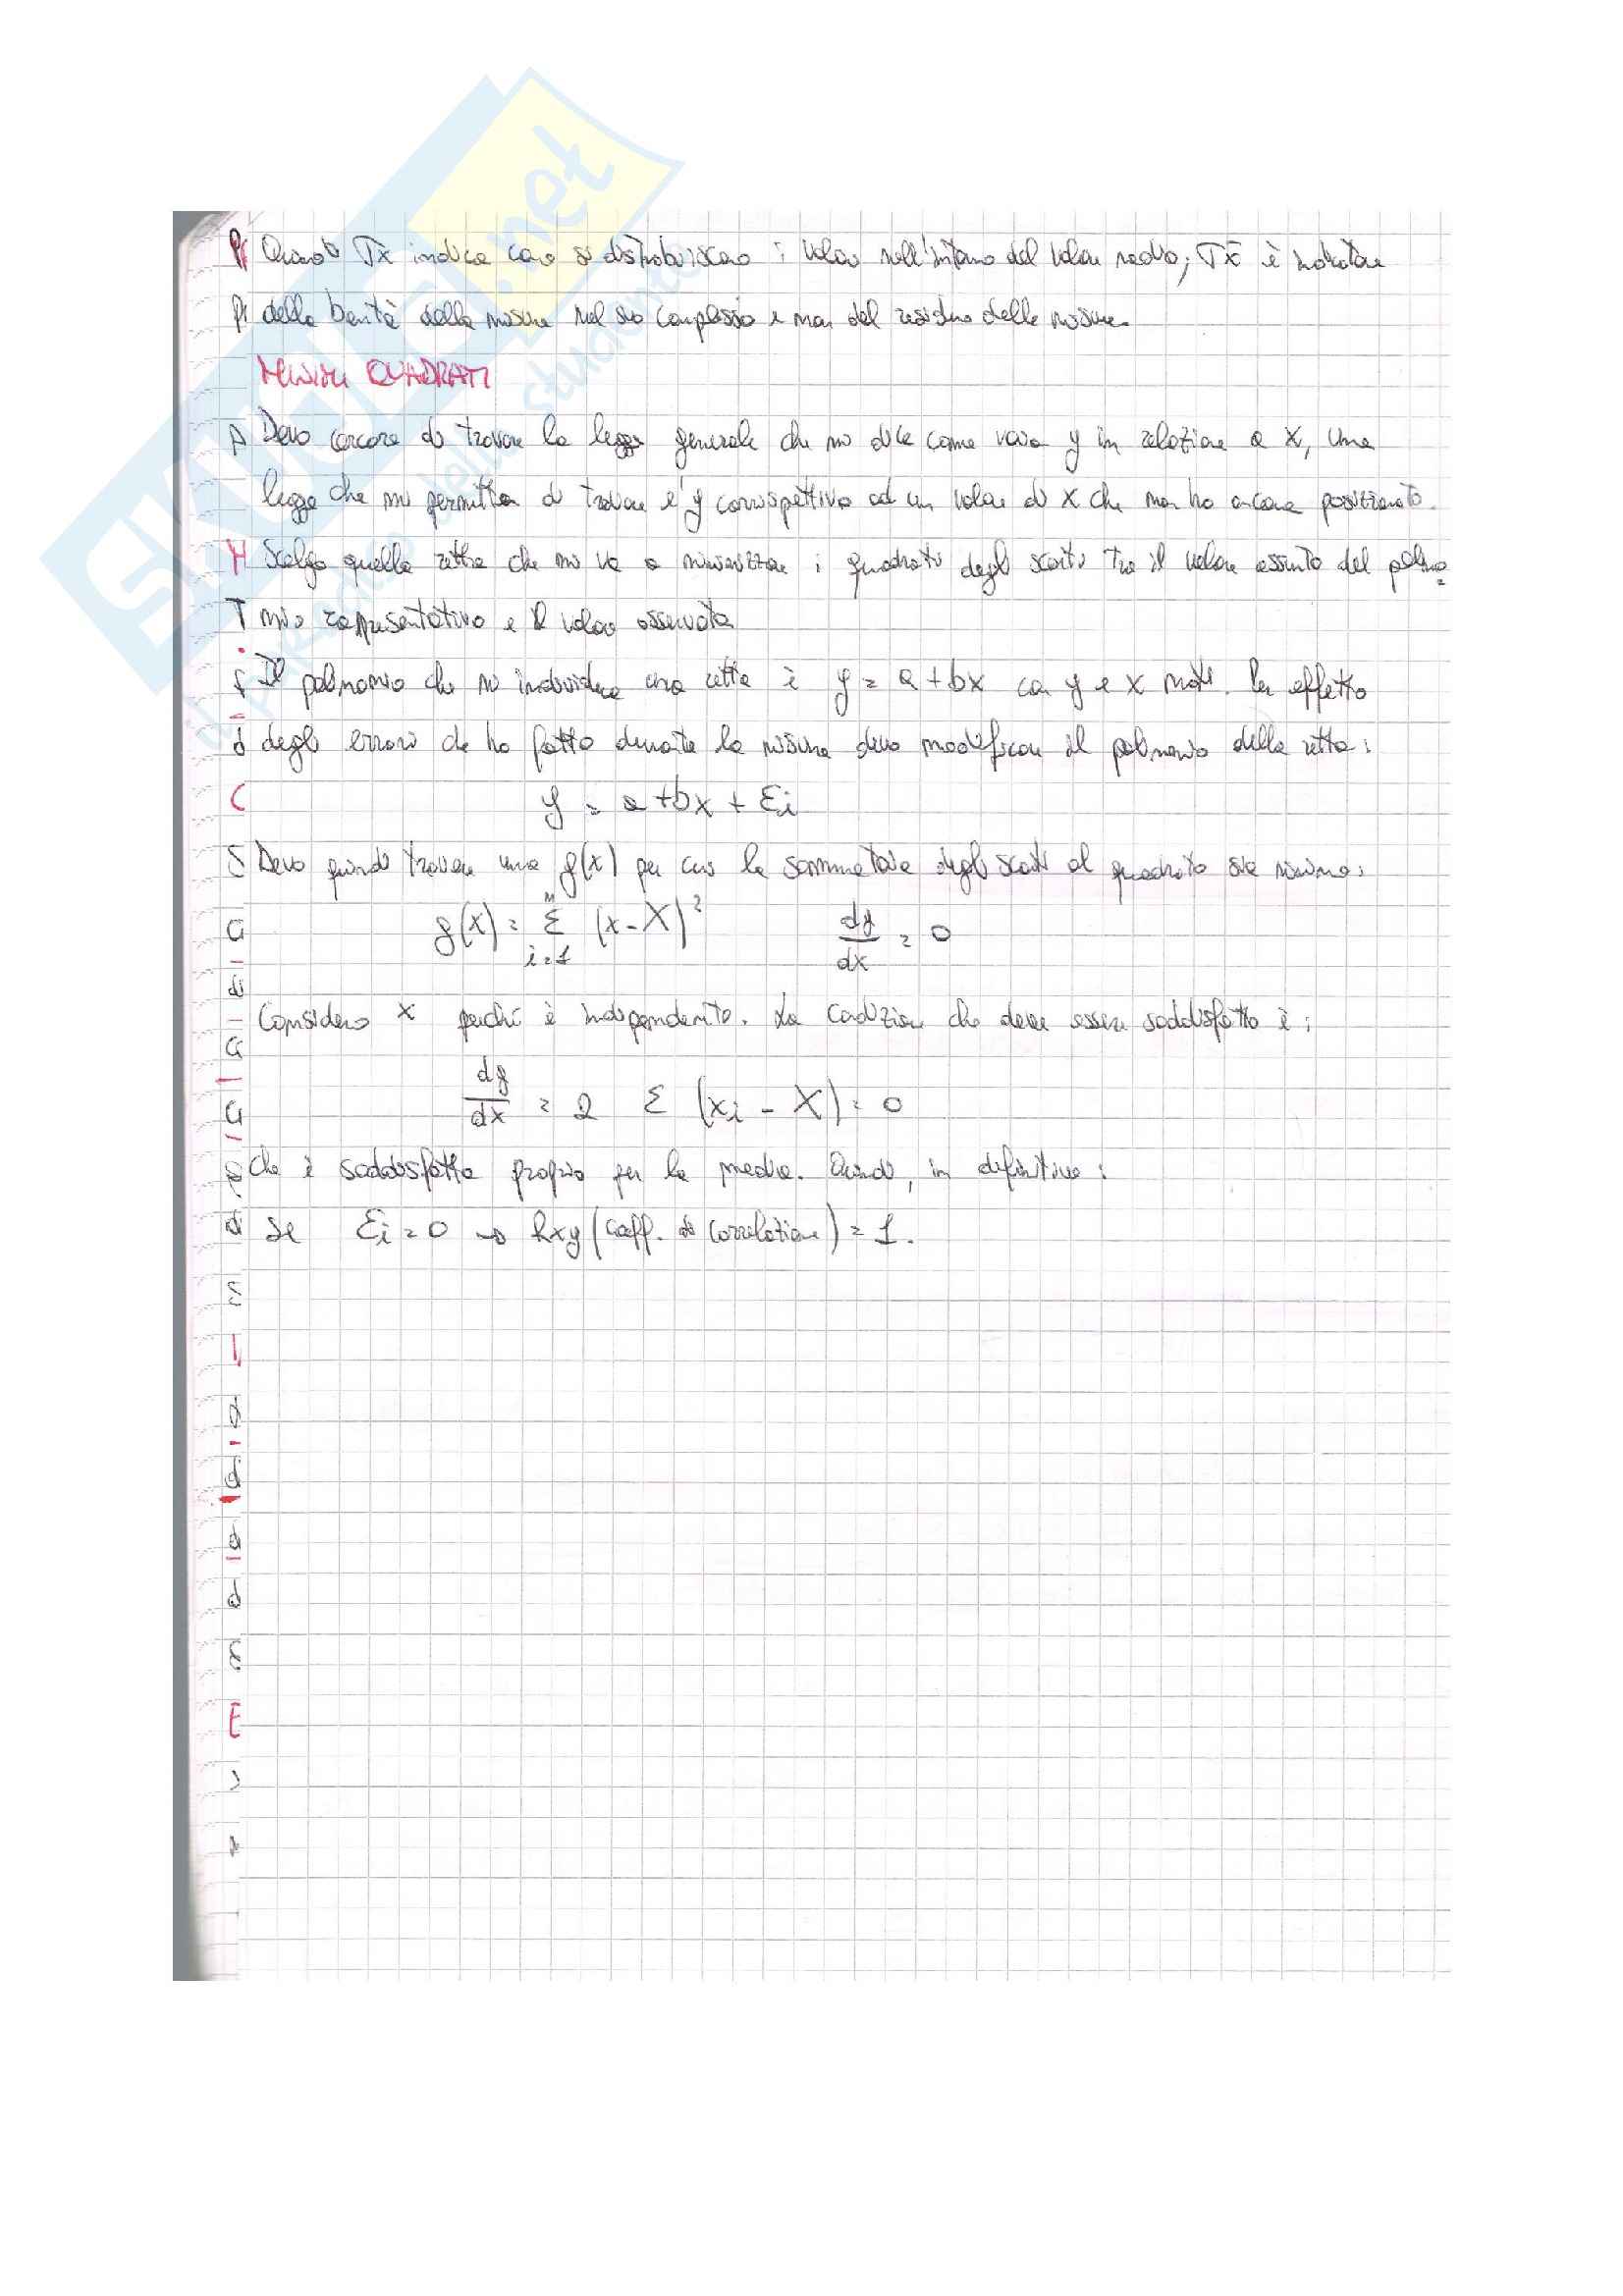 Quindi σx indica come si distribuiscono i valori nell'intorno del valor medio; σx̄ è indicatore
della bontà della misura nel suo complesso e non del residuo delle misure.
MINIMI QUADRATI
Devo cercare di trovare la legge generale che mi dice come varia y in relazione a x, una
legge che mi permetta di trovare l'y corrispettivo ad un valore di x che non ho ancora posizionato.
Scelgo quella retta che mi va a minimizzare i quadrati degli scarti tra il valore assunto dal polino=
mio rappresentativo e il valore osservato.
Il polinomio che mi individua una retta è y = a + bx con y e x noti. Per effetto
degli errori che ho fatto durante la misura devo modificare il polinomio della retta:
y = a + bx + Ei
Devo quindi trovare una g(x) per cui la sommatoria degli scarti al quadrato sia minima:
g(x) = Σ i=1 n (x - X)² dg/dx = 0
Considero x perché è indipendente. La condizione che deve essere soddisfatta è:
dg/dx = 2 Σ (xi - X) = 0
che è soddisfatta proprio per la media. Quindi, in definitiva:
Se Ei = 0 → Rxy (coeff. di correlazione) = 1.
SKUOLA.net